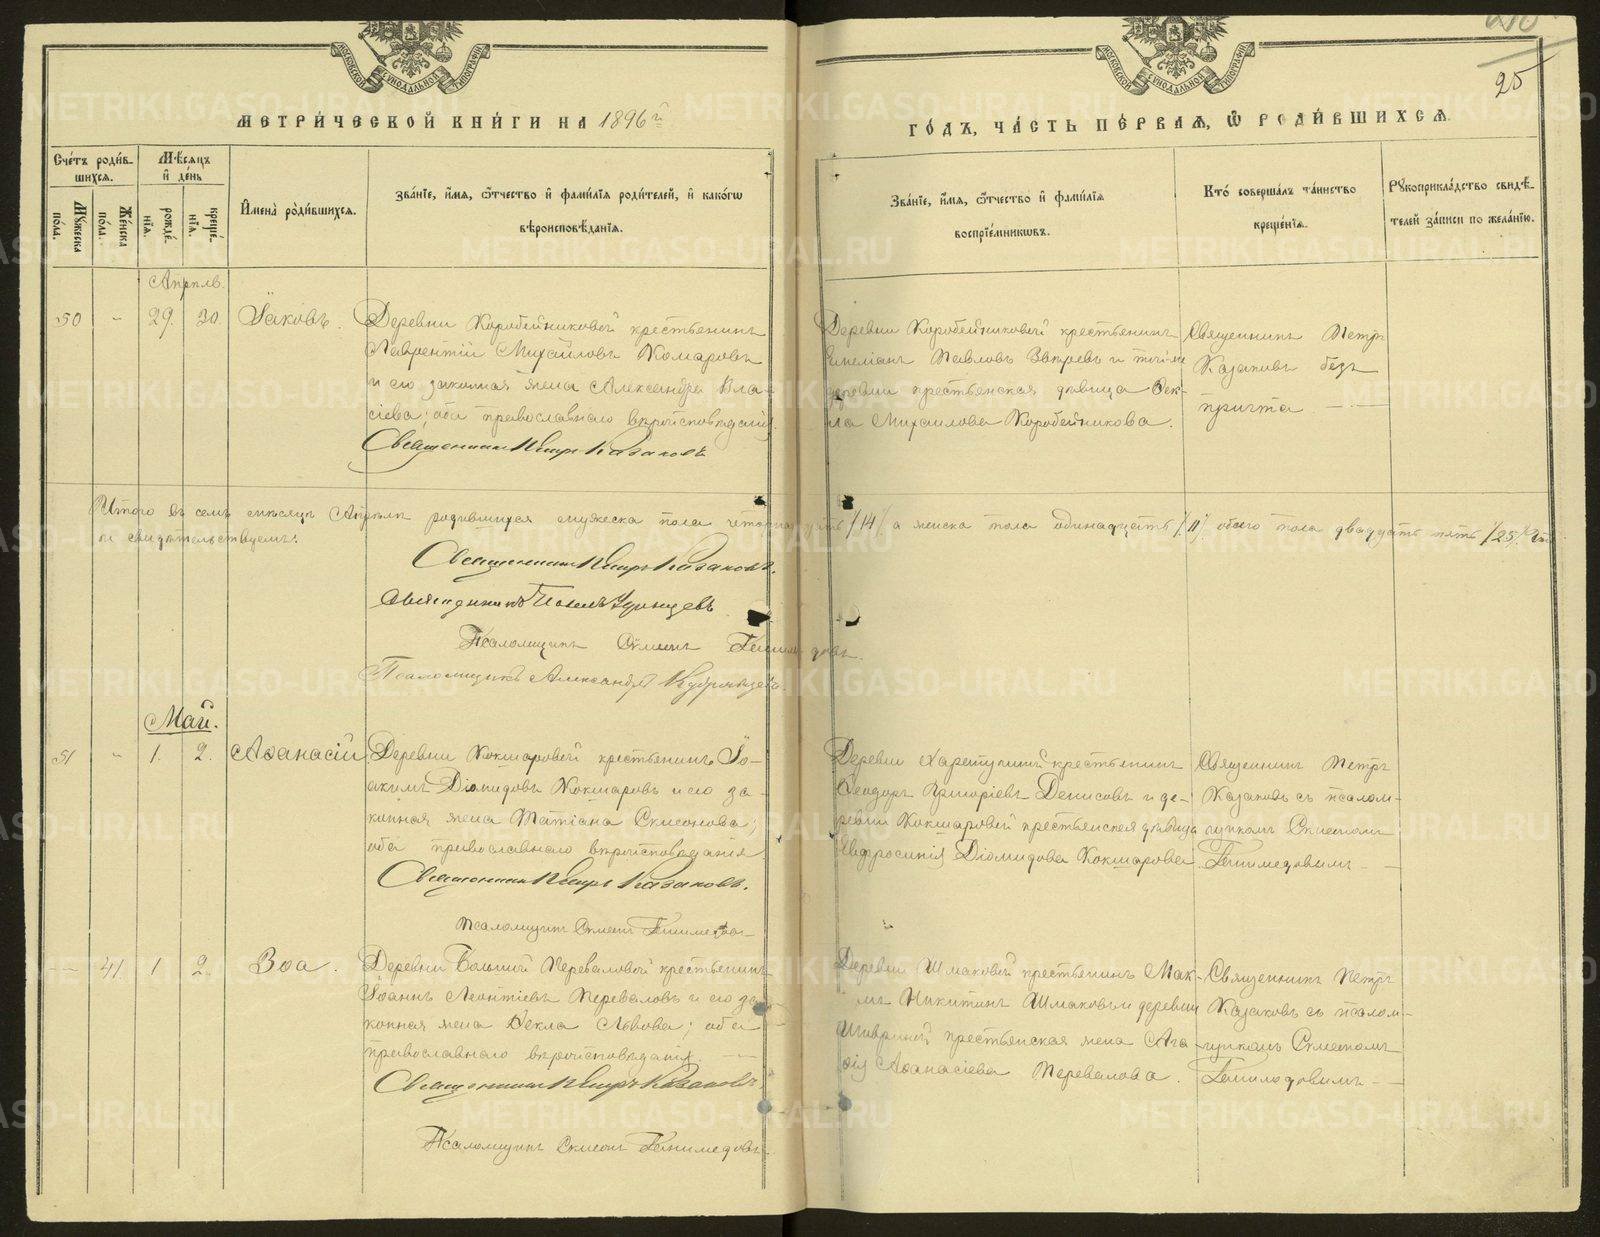 МЕТРИ́ЧЕСКОЙ КНИ́ГИ НА 1896й
ГО́ДЪ, ЧА́СТЬ ПЕ́РВАѦ, Ѽ РОДИ́ВШИХСѦ.
25
МОСКОВСКОЙ СѴНОДАЛЬНОЙ ТИПОГРАФІИ
МОСКОВСКОЙ СѴНОДАЛЬНОЙ ТИПОГРАФІИ
Сче́тъ роди́вшихсѧ.
Мꙋ́жеска по́ла.
Же́нска по́ла.
Мѣ́сѧцъ и҆ де́нь
рожде́нїѧ.
креще́нїѧ.
И҆мена̀ роди́вшихсѧ.
Зва́нїе, и҆́мѧ, ѻ҆́тчество и҆ фами́лїѧ роди́телей, и҆ како́гѡ
вѣроисповѣ́данїѧ.
Зва́нїе, и҆́мѧ, ѻ҆́тчество и҆ фами́лїѧ
воспрїе́мникѡвъ.
Кто́ соверша́лъ та́инство
креще́нїѧ.
Рꙋкоприкла́дство свидѣ́-
телей за́писи по жела́нїю.
Апрѣль.
50 - 29. 30. Іаковъ.
Деревни Коробейниковой крестьянинъ
Лаврентій Михайловъ Комаровъ
и его законная жена Александра Вла-
сіева; оба православнаго вѣроисповѣданія.
Священникъ Петръ Казаковъ
Деревни Коробейниковой крестьянинъ
Емеліанъ Павловъ Звѣревъ и тойже
деревни крестьянская дѣвица Ѳек-
ла Михаилова Коробейникова.
Священникъ Петръ
Казаковъ безъ
причта
Итого въ семъ мѣсяцѣ Апрѣлѣ родившихся мужеска пола четырнадцать /14/ а женска пола одинадцать /11/ обоего пола двадцать пять /25/
и свидѣтельствуемъ:
Священникъ Петръ Казаковъ.
Священникъ
Псаломщикъ Симеонъ
Псаломщикъ Александръ
Май.
51 - 1. 2. Аѳанасій
Деревни Кокшаровой крестьянинъ Іо-
акимъ Діомидовъ Кокшаровъ и его за-
конная жена Татіана Симеонова;
оба православнаго вѣроисповѣданія
Священникъ Петръ Казаковъ.
Псаломщикъ Симеонъ
Деревни крестьянинъ
Ѳеодоръ Григоріевъ Денисовъ и де-
ревни Кокшаровой крестьянская дѣвица
Евфросинія Діомидова Кокшарова
Священникъ Петръ
Казаковъ съ псалом-
щикомъ Симеономъ
41 1 2. Зоа.
Деревни Большой Переваловой крестьянинъ
Іоаннъ Леонтіевъ Переваловъ и его за-
конная жена Ѳекла Львова; оба
православнаго вѣроисповѣданія.
Священникъ Петръ Казаковъ.
Псаломщикъ Симеонъ
Деревни Шмаковой крестьянинъ Мак-
имъ Никитинъ Шмаковъ и деревни
крестьянская жена Ага-
ѳія Аѳанасіева Перевалова.
Священникъ Петръ
Казаковъ съ псалом-
щикомъ Симеономъ
METRIKI.GASO-URAL.RU